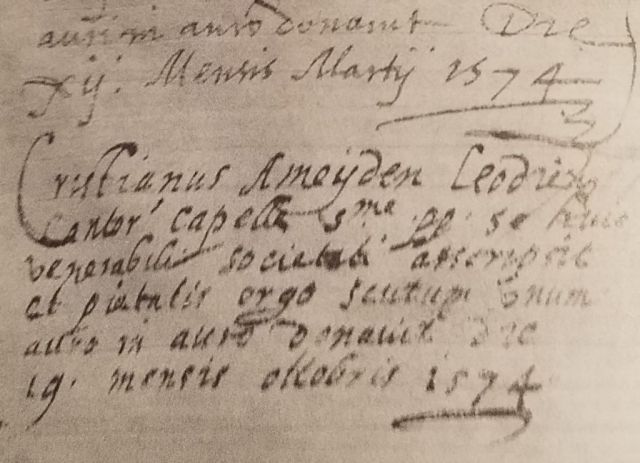 auri in auro donavit Die
xij. Mensis Martij 1574
Cristianus Ameijden Leodien
Cantor capelle s.me pp. se huic
venerabili societati asscripsit
et pietatis ergo scutum unum
auro in auro donavit Die
19. mensis ottobris 1574